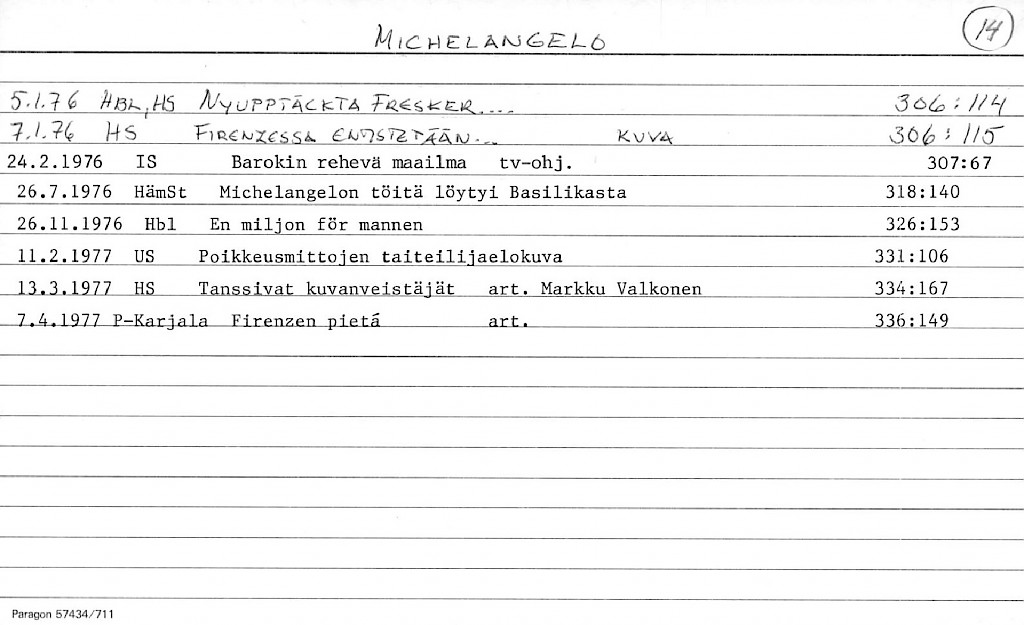 MICHELANGELO 14
5.1.76 HBL, HS NYUPPTÄCKTA FRESKER.... 306:114
7.1.76 HS FIRENZESSA ENTISTETÄÄN... KUVA 306:115
24.2.1976 IS Barokin rehevä maailma tv-ohj. 307:67
26.7.1976 HämSt Michelangelon töitä löytyi Basilikasta 318:140
26.11.1976 Hbl En miljon för mannen 326:153
11.2.1977 US Poikkeusmittojen taiteilijaelokuva 331:106
13.3.1977 HS Tanssivat kuvanveistäjät art. Markku Valkonen 334:167
7.4.1977 P-Karjala Firenzen pietá art. 336:149
Paragon 57434/711